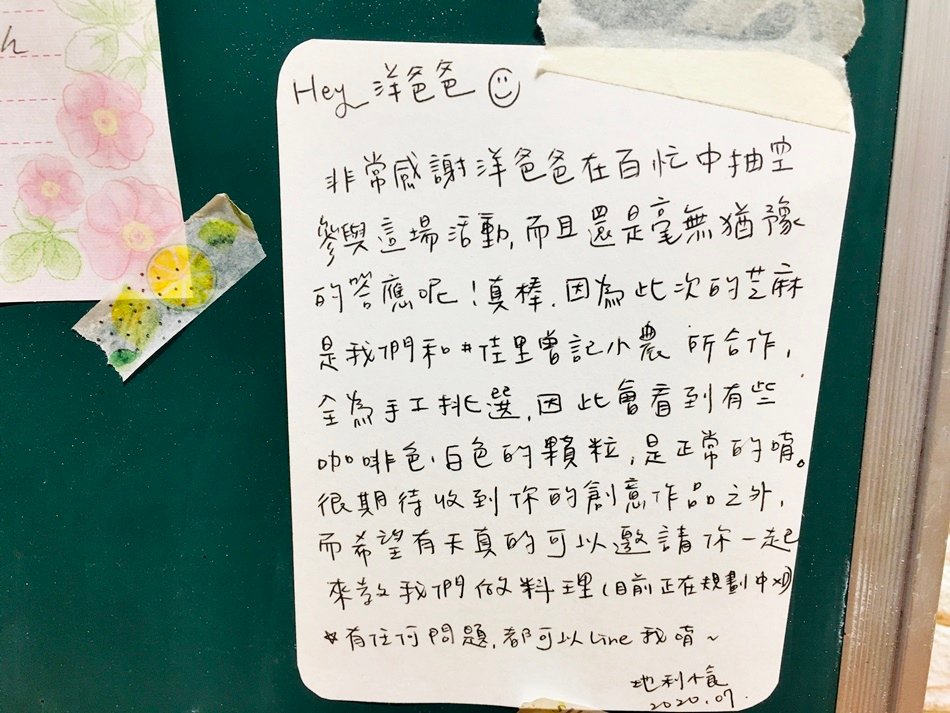 Hey 洋爸爸
非常感謝洋爸爸在百忙中抽空
參與這場活動,而且還是毫無猶豫
的答應呢!真棒.因為此次的芝麻
是我們和#佳里曾記小農 所合作,
全為手工挑選,因此會看到有些
咖啡色、白色的顆粒,是正常的唷。
很期待收到你的創意作品之外,
而希望有天真的可以邀請你一起
來教我們做料理(目前正在規劃中XD)
*有任何問題,都可以Line我唷~
2020.07.